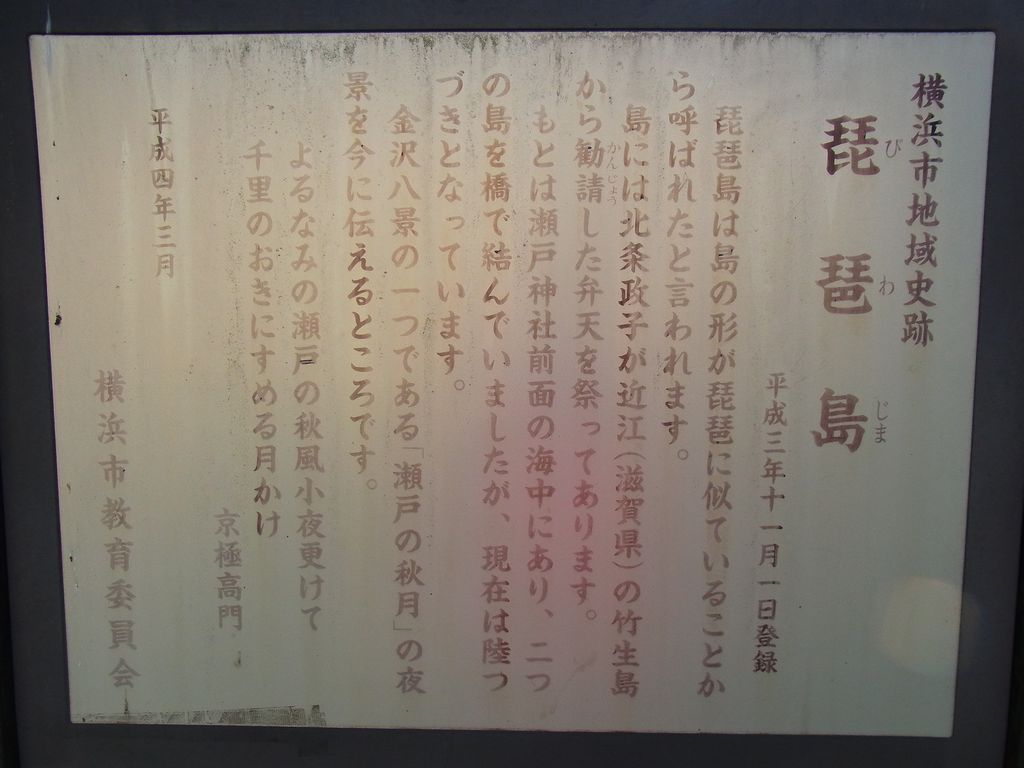 横浜市地域史跡
琵琶島
びわじま
平成三年十一月一日登録
琵琶島は島の形が琵琶に似ていることか
ら呼ばれたと言われます。
島には北条政子が近江（滋賀県）の竹生島
から勧請した弁天を祭ってあります。
かんじょう
もとは瀬戸神社前面の海中にあり、二つ
の島を橋で結んでいましたが、現在は陸つ
づきとなっています。
金沢八景の一つである「瀬戸の秋月」の夜
景を今に伝えるところです。
よるなみの瀬戸の秋風小夜更けて
千里のおきにすめる月かけ
京極高門
平成四年三月
横浜市教育委員会